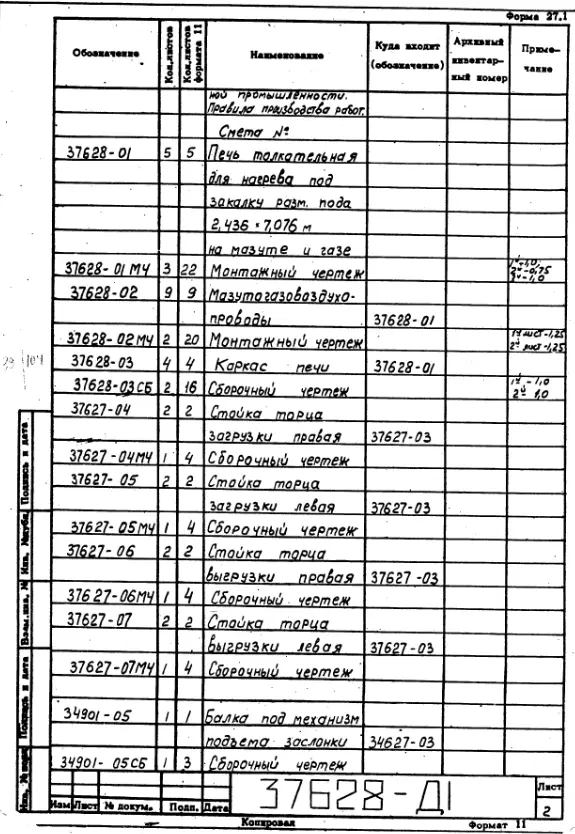 Форма 27.1
Обозначение Кол.листов Кол.листов формата 11 Наименование Куда входит (обозначение) Архивный инвентарный номер Примечание
ной промышленности.
Правила производства работ.
Смета №
37628-01 5 5 Печь толкательная
для нагрева под
закалку разм. пода
2,436 × 7,076 м
на мазуте и газе
37628-01 МЧ 3 22 Монтажный чертеж
37628-02 9 9 Мазутогазовоздухо-
проводы 37628-01
37628-02МЧ 2 20 Монтажный чертеж 1й лист-1,25
2й лист-1,25
37628-03 4 4 Каркас печи 37628-01
37628-03СБ 2 16 Сборочный чертеж 1й - 1,0
2й 1,0
37627-04 2 2 Стойка торца
загрузки правая 37627-03
37627-04МЧ 1 4 Сборочный чертеж
37627-05 2 2 Стойка торца
загрузки левая 37627-03
37627-05МЧ 1 4 Сборочный чертеж
37627-06 2 2 Стойка торца
выгрузки правая 37627-03
37627-06МЧ 1 4 Сборочный чертеж
37627-07 2 2 Стойка торца
выгрузки левая 37627-03
37627-07МЧ 1 4 Сборочный чертеж
34901-05 1 1 Балка под механизм
подъема заслонки 34627-03
34901-05СБ 1 3 Сборочный чертеж
Подпись и дата
Инв. №дубл.
Взам.инв. №
Подпись и дата
Инв. №
Изм Лист № докум. Подп. Дата
37628-Д1
Лист
2
Копировал Формат 11